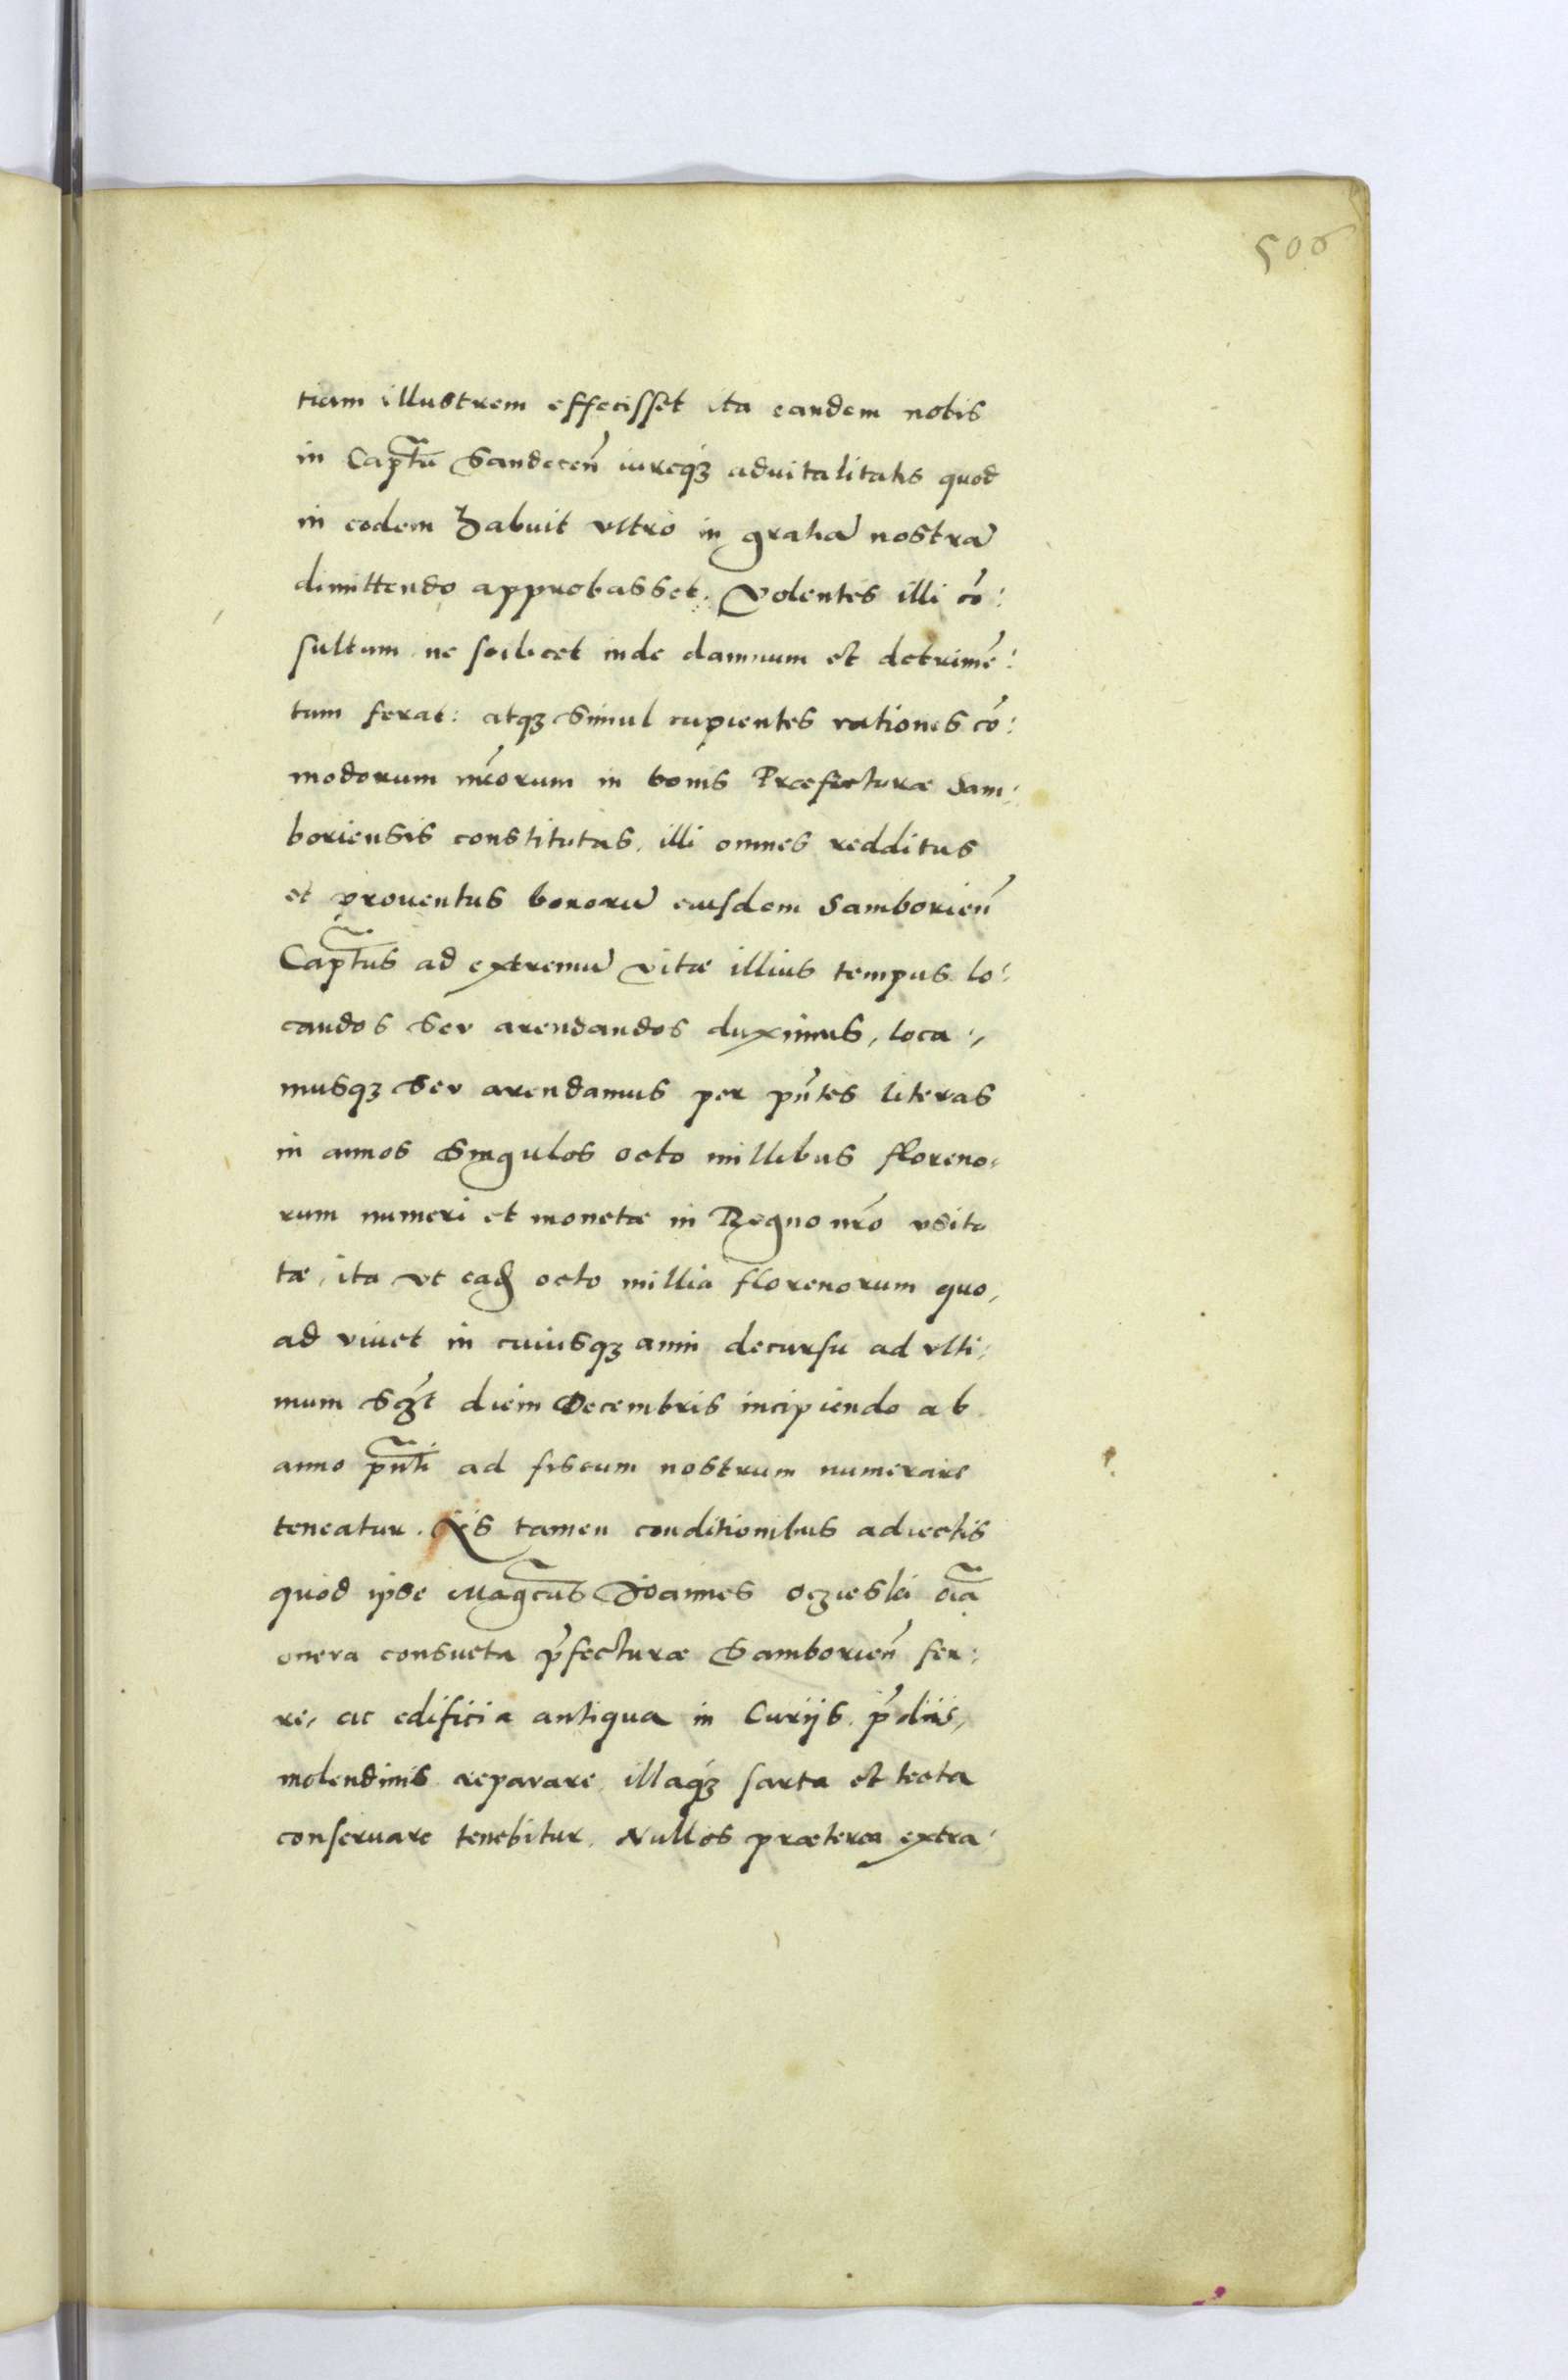 506
tiam illustrem effecisset ita eandem nobis
in Captũ Sandecen̄ iureqꝫ aduitalitatis quod
in eodem habuit vltro in gratiã nostrã
dimittendo approbasset. Volentes illi cõ:
sultum ne scilicet inde damnum et detrimẽ:
tum ferat: atqꝫ simul cupientes rationes cõ:
modorum nr̃orum in bonis Præfecturæ Sam:
boriensis constitutas, illi omnes redditus
et prouentus bonorũ eiusdem Samborien̄
Captũs ad extremũ vitæ illius tempus lo:
candos seu arendandos duximus, loca:
musqꝫ seu arendamus per pñtes literas
in annos singulos octo millibus floreno:
rum numeri et monetæ in Regno nr̃o vsita
tæ, ita vt eadȩ octo millia florenorum quo,
ad viuet in cuiusqꝫ anni decursu ad vlti:
mum sczt̃ diem Decembris incipiendo ab
anno pñti ad fiscum nostrum numerare
teneatur. Iis tamen conditionibus adiectis
quod ipse Magcũs Ioannes oczieski oĩa
onera consueta p̃fecturæ Samborien̄ fer:
re, ac edificia antiqua in Curijs, p̃diis,
molendinis reparare, illaqꝫ sarta et tecta
conseruare tenebitur. Nullos præterea extra: